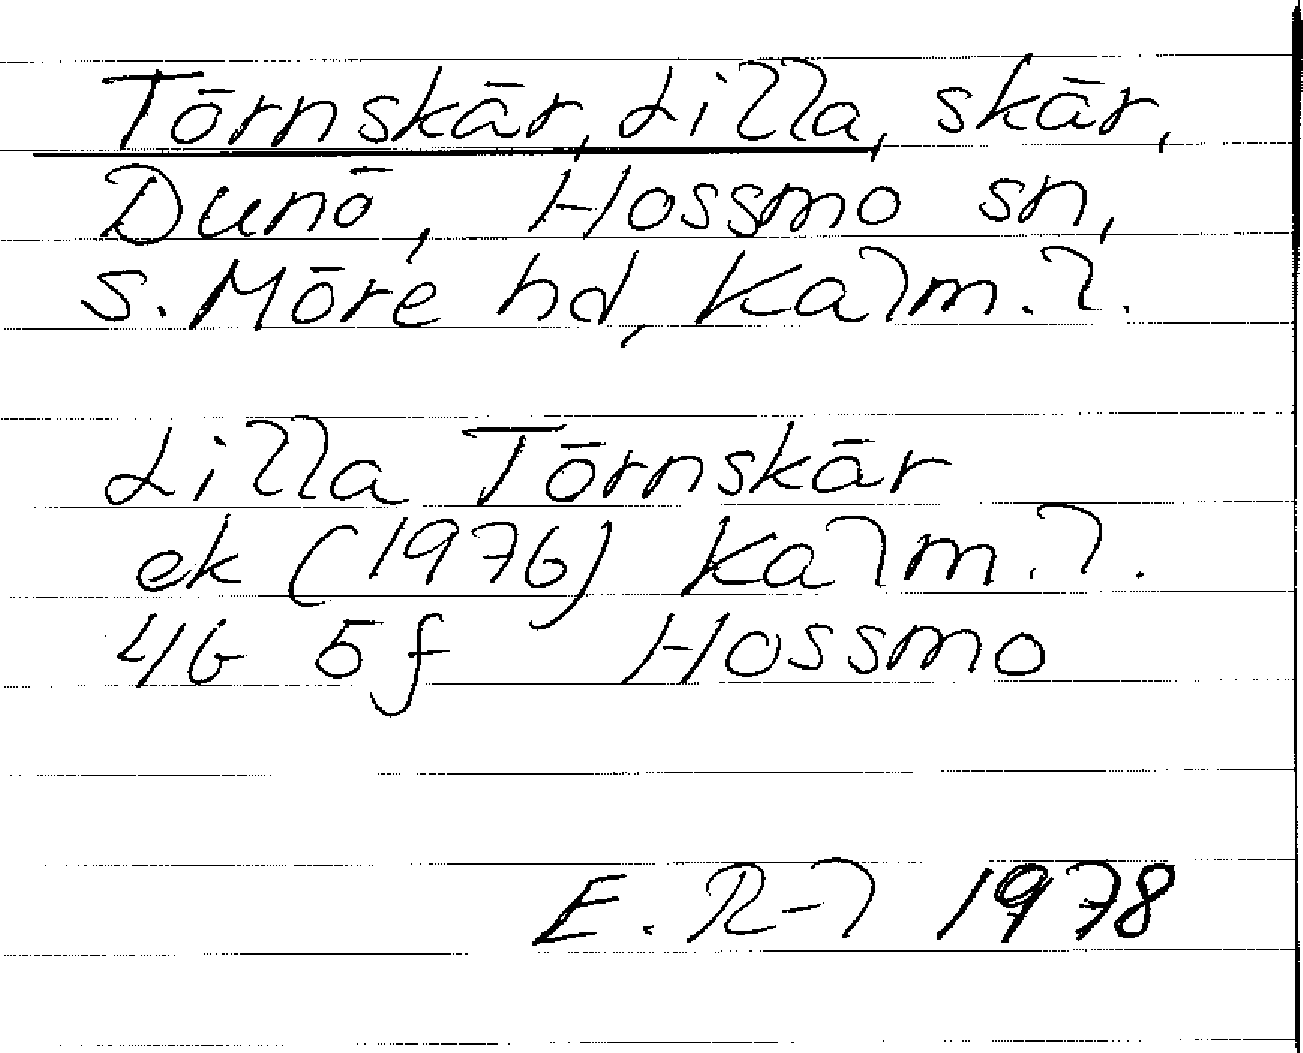 Törnskär, Lilla, skär,
Dunö, Hossmo sn,
S. Möre hd, Kalm. l.
Lilla Törnskär
ek (1976) Kalm. l.
4G 5f Hossmo
E. R-l 1978